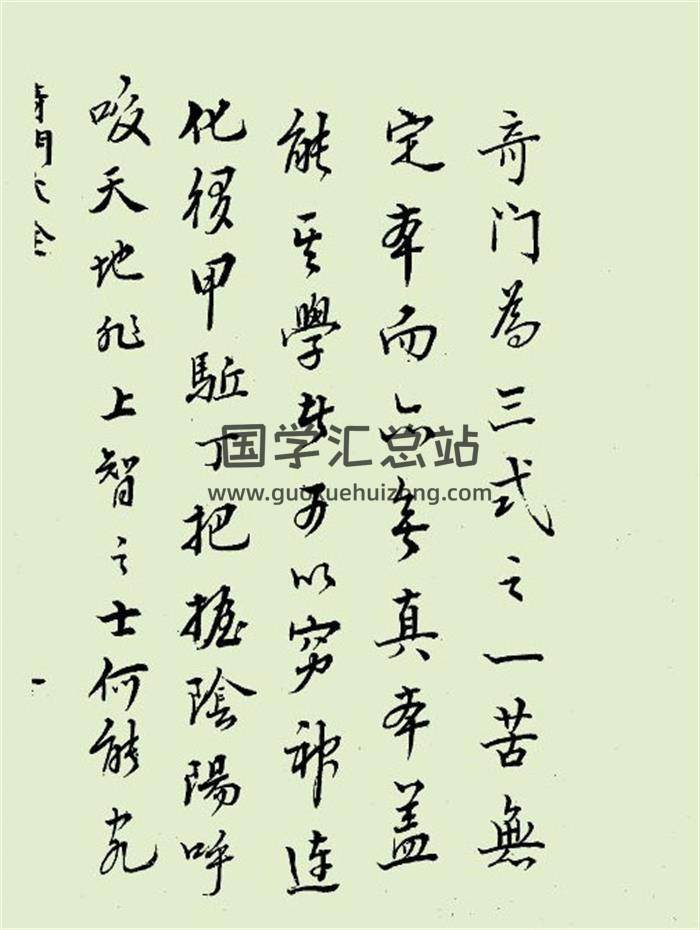 奇门為三式之一苦無
定夲而亦無真夲盖
能其學者可以穷神連
化役甲駈丁把握陰陽呼
吸天地非上智之士何能究
奇門大全
一
国学汇总站
www.guoxuehuizong.com